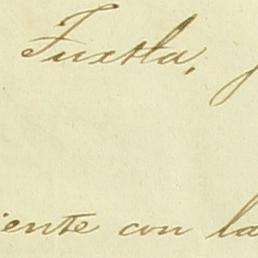 Tuxtla,
iente con la